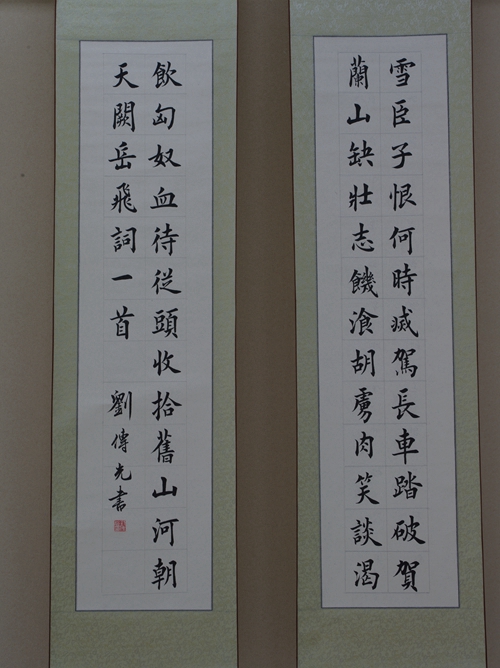 雪臣子恨何時滅駕長車踏破賀
蘭山缺壯志饑飡胡虜肉笑談渴
飲匈奴血待從頭收拾舊山河朝
天闕岳飛詞一首 劉傳光書